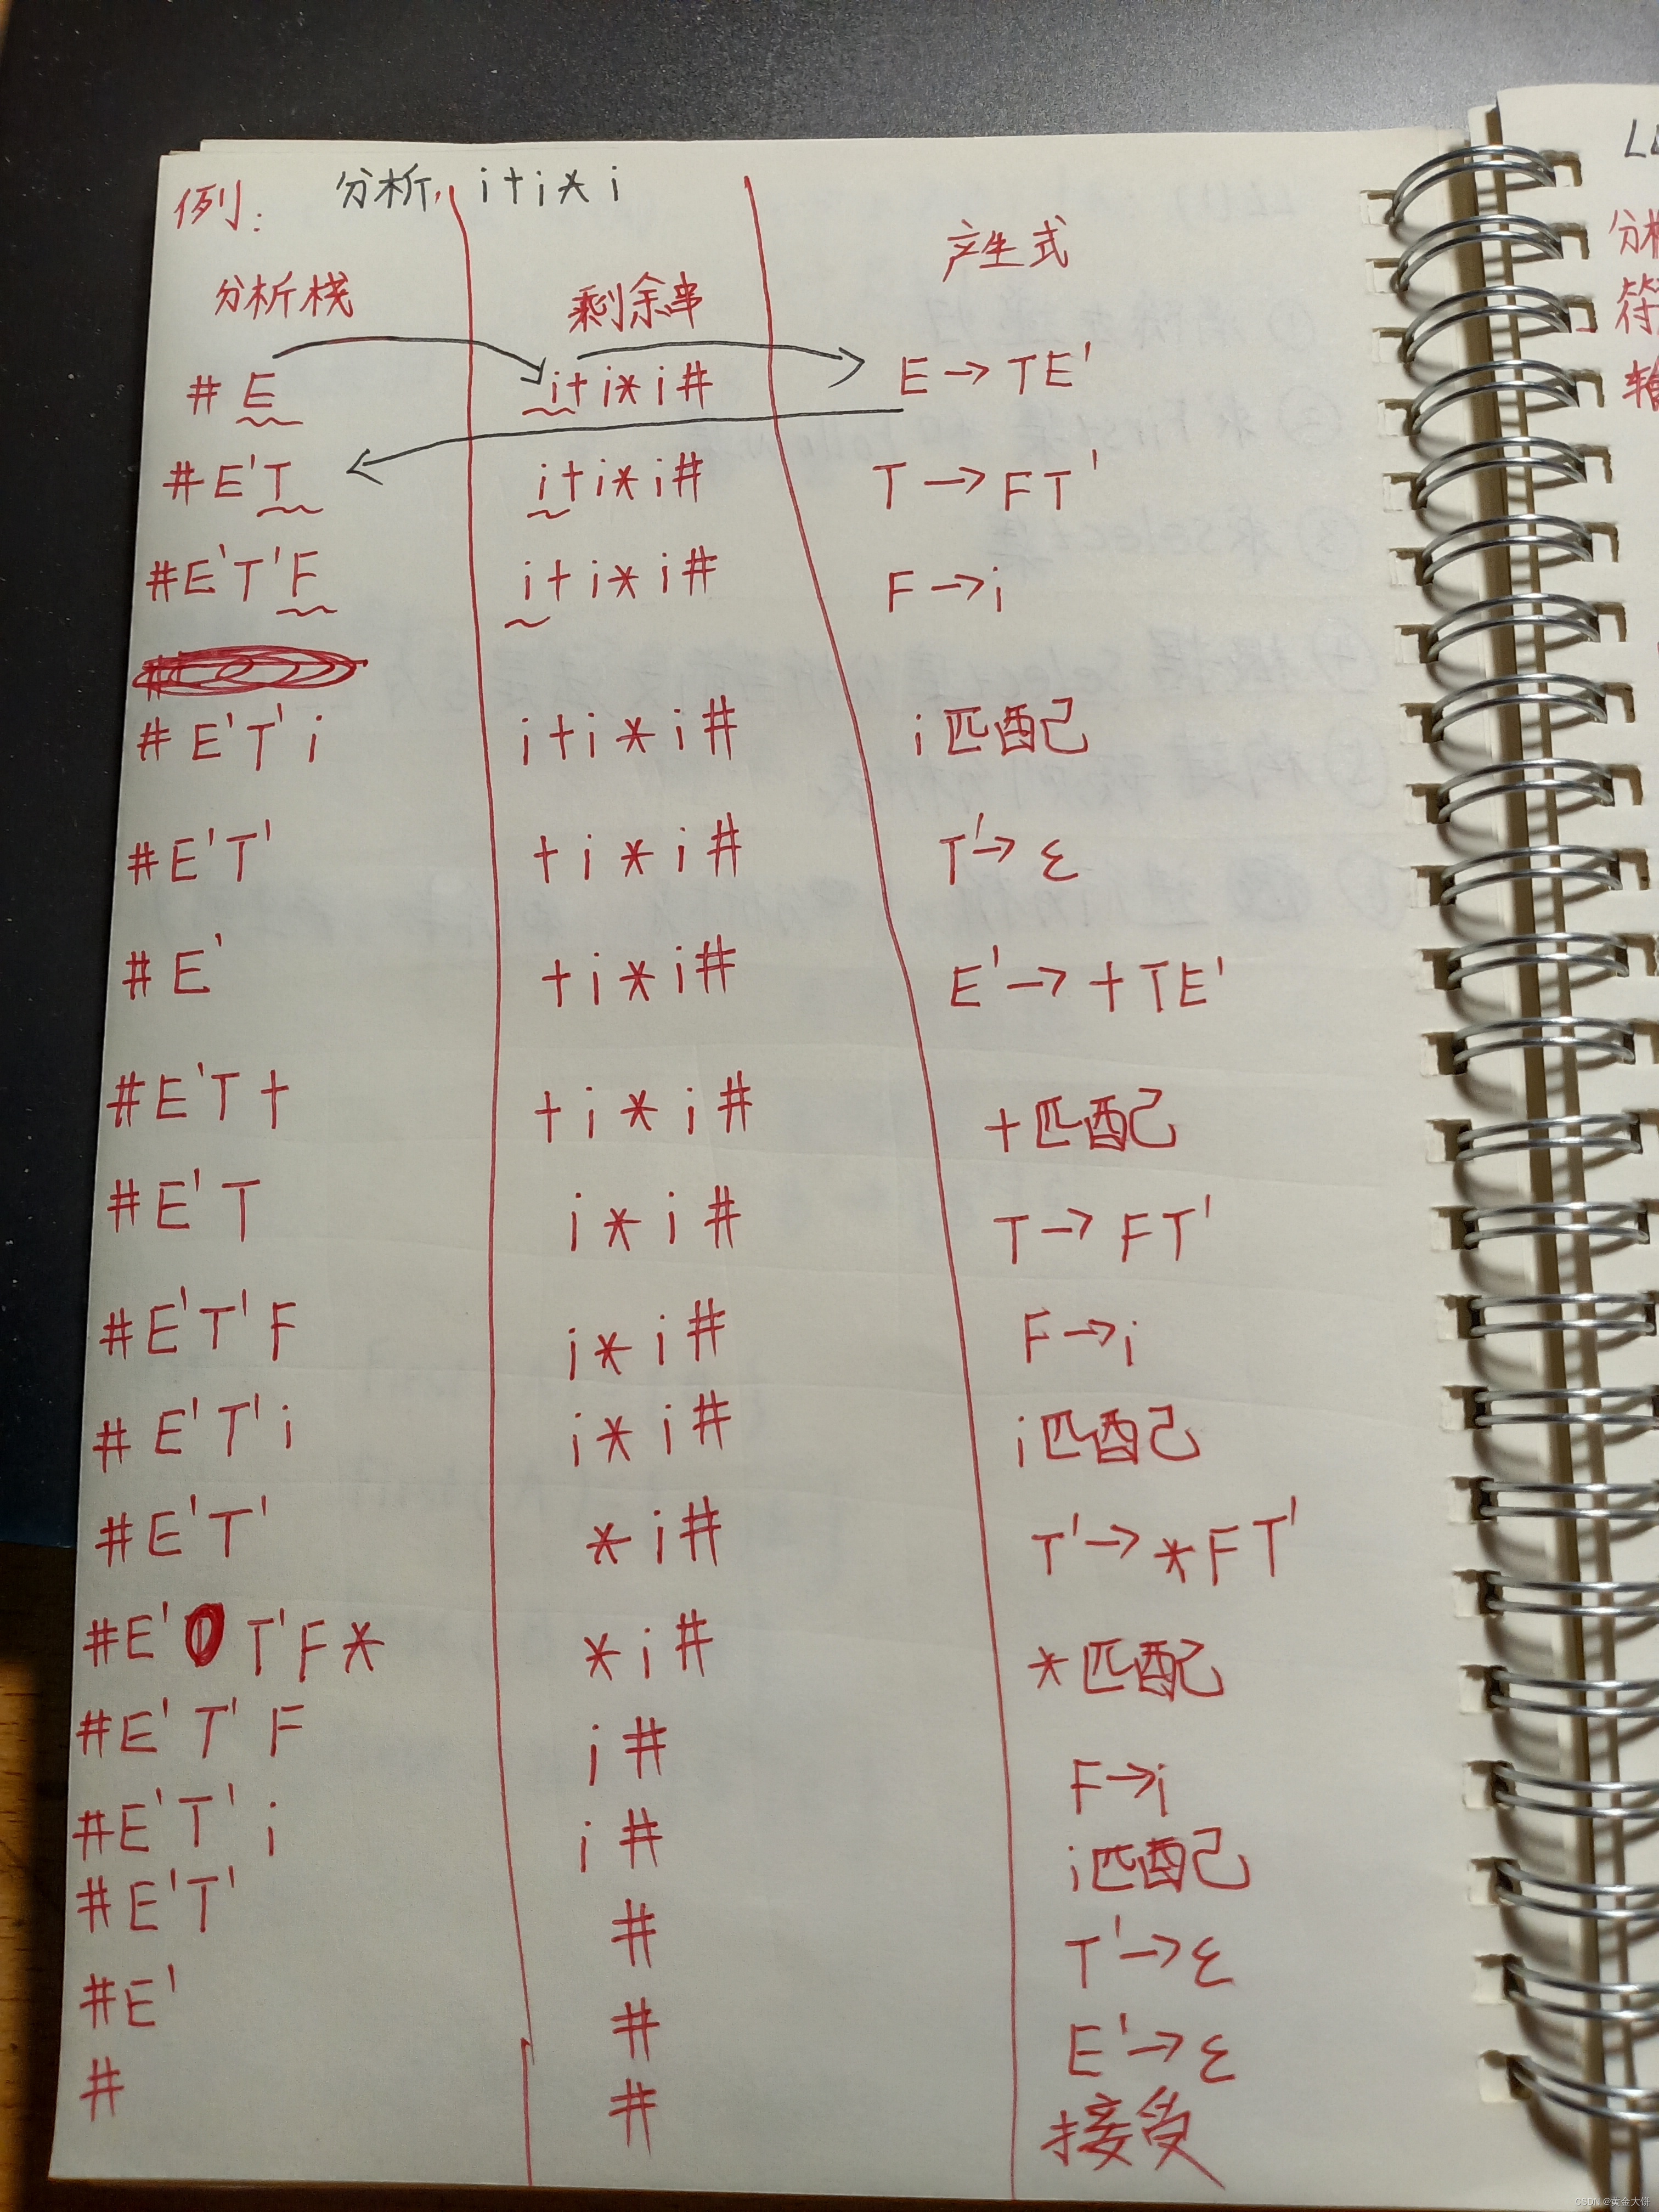 例: 分析, i+i*i
分析栈 剩余串 产生式
#E i+i*i# E→TE'
#E'T i+i*i# T→FT'
#E'T'F i+i*i# F→i
#E'T'i i+i*i# i匹配
#E'T' +i*i# T'→ε
#E' +i*i# E'→+TE'
#E'T+ +i*i# +匹配
#E'T i*i# T→FT'
#E'T'F i*i# F→i
#E'T'i i*i# i匹配
#E'T' *i# T'→*FT'
#E'T'F* *i# *匹配
#E'T'F i# F→i
#E'T'i i# i匹配
#E'T' # T'→ε
#E' # E'→ε
# # 接受
分析
符
CSDN @黄金大饼